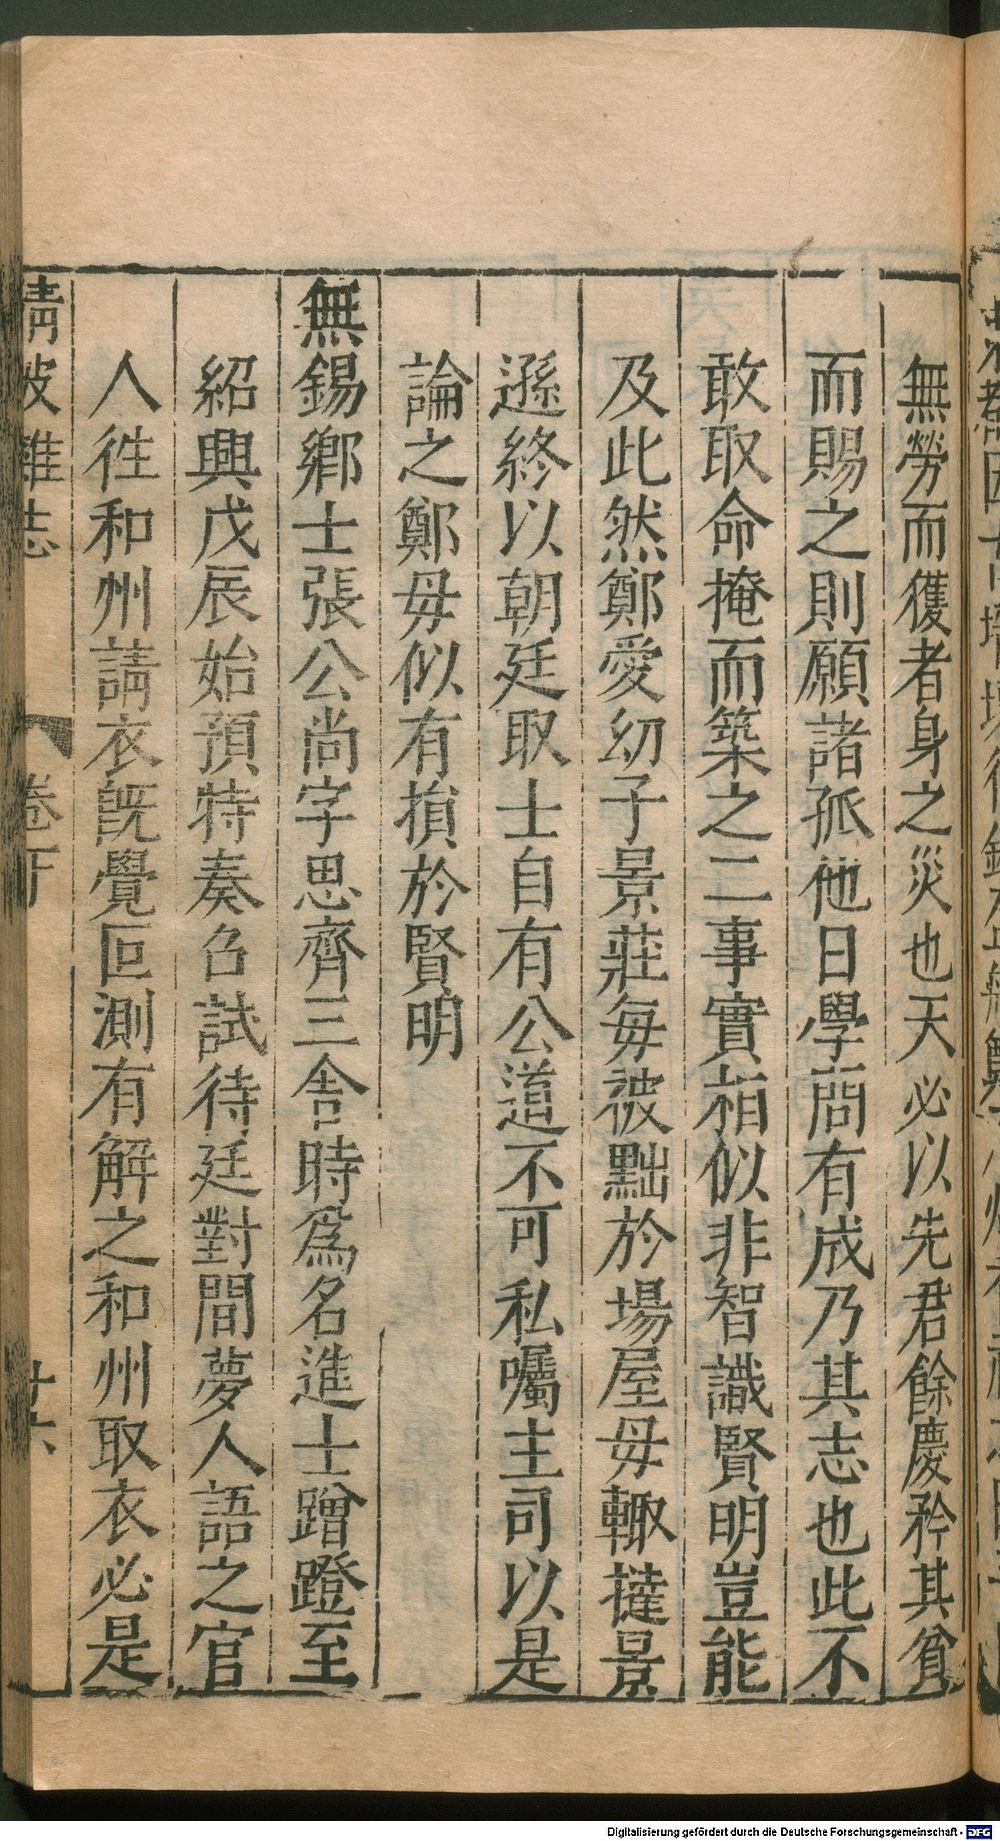 無勞而獲者身之災也天必以先君餘慶矜其貧
而賜之則願諸孤他日學問有成乃其志也此不
敢取命掩而築之二事實相似非智識賢明豈能
及此然鄭愛幼子景莊每被黜於場屋毋輙撻景
遜終以朝廷取士自有公道不可私囑主司以是
論之鄭毋似有損於賢明
無錫鄉士張公尚字思齊三舍時爲名進士蹭蹬至
紹興戊辰始預特奏名試待廷對間夢人語之官
人徃和州請衣旣覺叵測有解之和州取衣必是
清波雜志
卷下
廿六
Digitalisierung gefördert durch die Deutsche Forschungsgemeinschaft - DFG